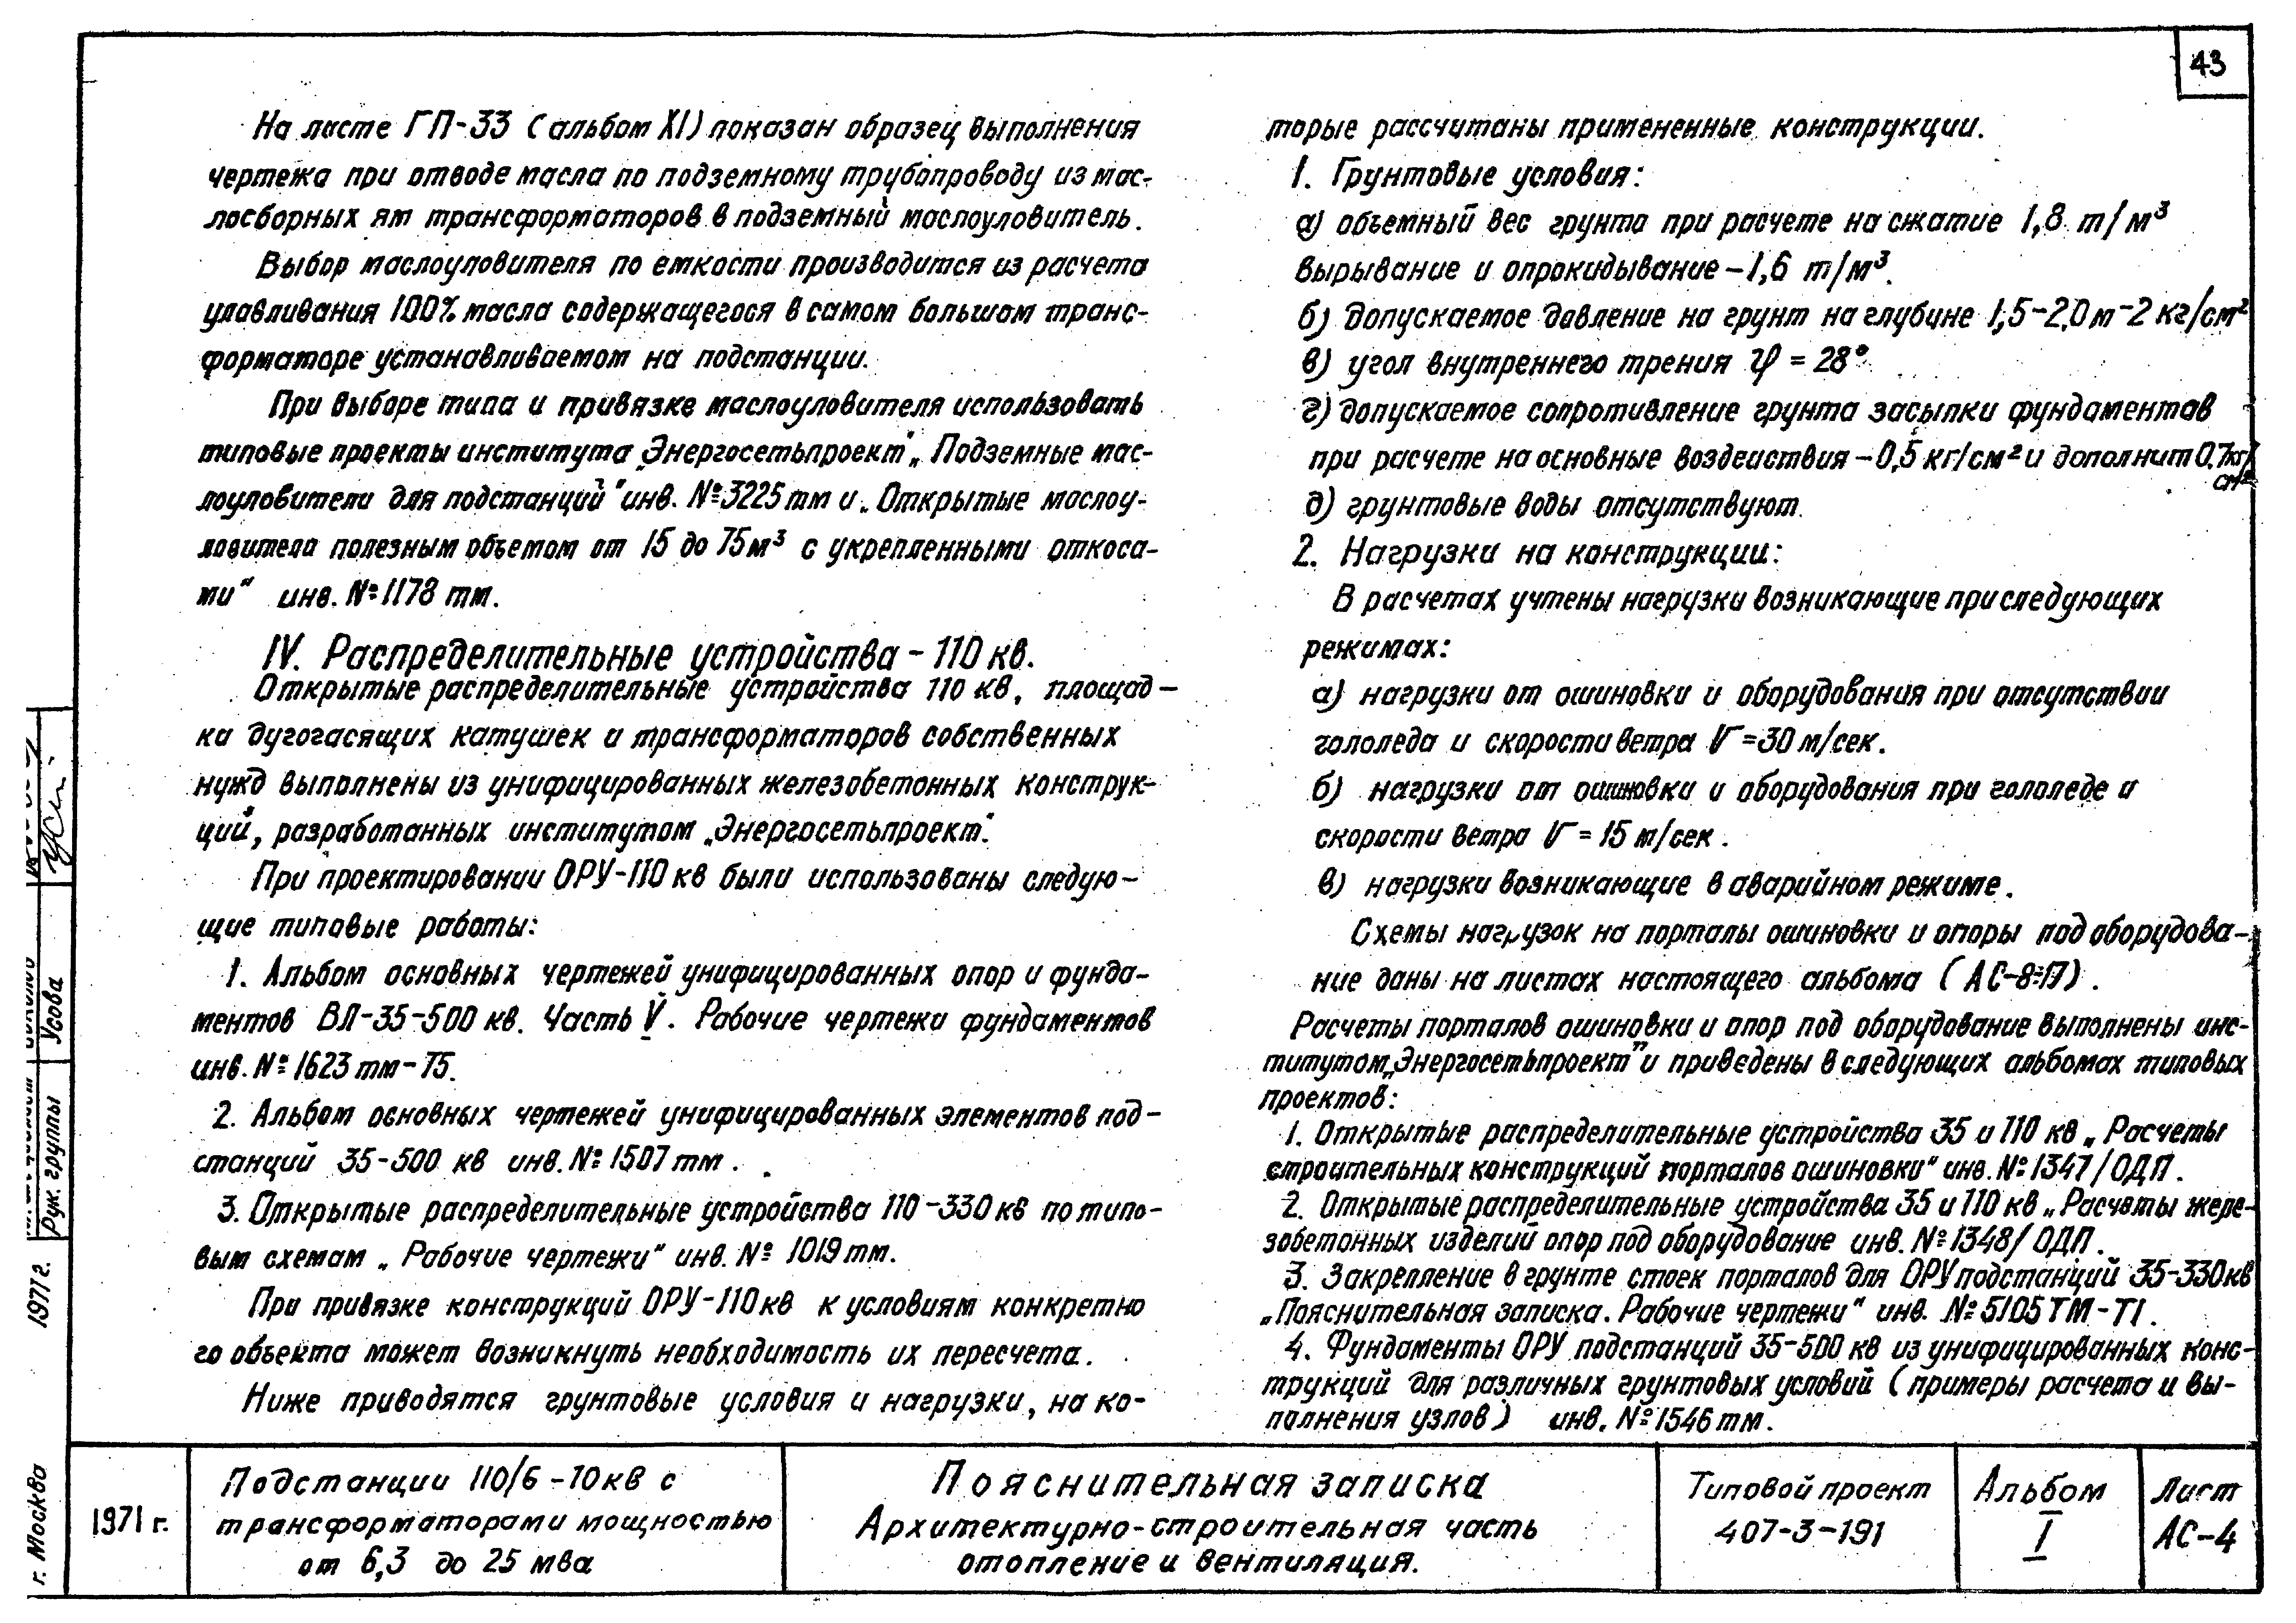 43
На листе ГП-33 (альбом XI) показан образец выполнения
чертежа при отводе масла по подземному трубопроводу из мас-
лосборных ям трансформаторов в подземный маслоуловитель.
Выбор маслоуловителя по емкости производится из расчета
улавливания 100% масла содержащегося в самом большом транс-
форматоре устанавливаемом на подстанции.
При выборе типа и привязке маслоуловителя использовать
типовые проекты института „Энергосетьпроект“ „Подземные мас-
лоуловители для подстанций“ инв. №3225тм и „Открытые маслоу-
ловители полезным объемом от 15 до 75м³ с укрепленными откоса-
ми“ инв. №1178 тм.
IV. Распределительные устройства - 110 кв.
Открытые распределительные устройства 110 кв, площад-
ка дугогасящих катушек и трансформаторов собственных
нужд выполнены из унифицированных железобетонных конструк-
ций, разработанных институтом „Энергосетьпроект“.
При проектировании ОРУ-110 кв были использованы следую-
щие типовые работы:
1. Альбом основных чертежей унифицированных опор и фунда-
ментов ВЛ-35-500 кв. Часть V. Рабочие чертежи фундаментов
инв. №1623тм-Т5.
2. Альбом основных чертежей унифицированных элементов под-
станций 35-500 кв инв. №1507тм.
3. Открытые распределительные устройства 110-330 кв по типо-
вым схемам „Рабочие чертежи“ инв. № 1019тм.
При привязке конструкций ОРУ-110кв к условиям конкретно
го объекта может возникнуть необходимость их пересчета.
Ниже приводятся грунтовые условия и нагрузки, на ко-
торые рассчитаны примененные конструкции.
1. Грунтовые условия:
а) объемный вес грунта при расчете на сжатие 1,8 т/м³
вырывание и опрокидывание-1,6 т/м³.
б) допускаемое давление на грунт на глубине 1,5-2,0м-2кг/см²
в) угол внутреннего трения φ = 28°
г) допускаемое сопротивление грунта засыпки фундаментов
при расчете на основные воздействия-0,5 кг/см² и дополнит 0,7кг/
см²
д) грунтовые воды отсутствуют.
2. Нагрузки на конструкции:
В расчетах учтены нагрузки возникающие при следующих
режимах:
а) нагрузки от ошиновки и оборудования при отсутствии
гололеда и скорости ветра V=30 м/сек.
б) нагрузки от ошиновки и оборудования при гололеде и
скорости ветра V=15 м/сек.
в) нагрузки возникающие в аварийном режиме.
Схемы нагрузок на порталы ошиновки и опоры под оборудова-
ние даны на листах настоящего альбома (АС-8÷17).
Расчеты порталов ошиновки и опор под оборудование выполнены инс-
титутом „Энергосетьпроект“ и приведены в следующих альбомах типовых
проектов:
1. Открытые распределительные устройства 35 и 110 кв „Расчеты
строительных конструкций порталов ошиновки“ инв. №1347/ОДП.
2. Открытые распределительные устройства 35 и 110 кв „Расчеты желе-
зобетонных изделий опор под оборудование инв. №1348/ОДП.
3. Закрепление в грунте стоек порталов для ОРУ подстанций 35-330кв
„Пояснительная записка. Рабочие чертежи“ инв. №5105ТМ-Т1.
4. Фундаменты ОРУ подстанций 35-500 кв из унифицированных конс-
трукций для различных грунтовых условий (примеры расчета и вы-
полнения узлов) инв. №1546тм.
Рук. группы Усова
1971г.
г. Москва
1971 г.
Подстанции 110/6-10кв с
трансформаторами мощностью
от 6,3 до 25 мва
Пояснительная записка
Архитектурно-строительная часть
отопление и вентиляция.
Типовой проект
407-3-191
Альбом
I
Лист
АС-4